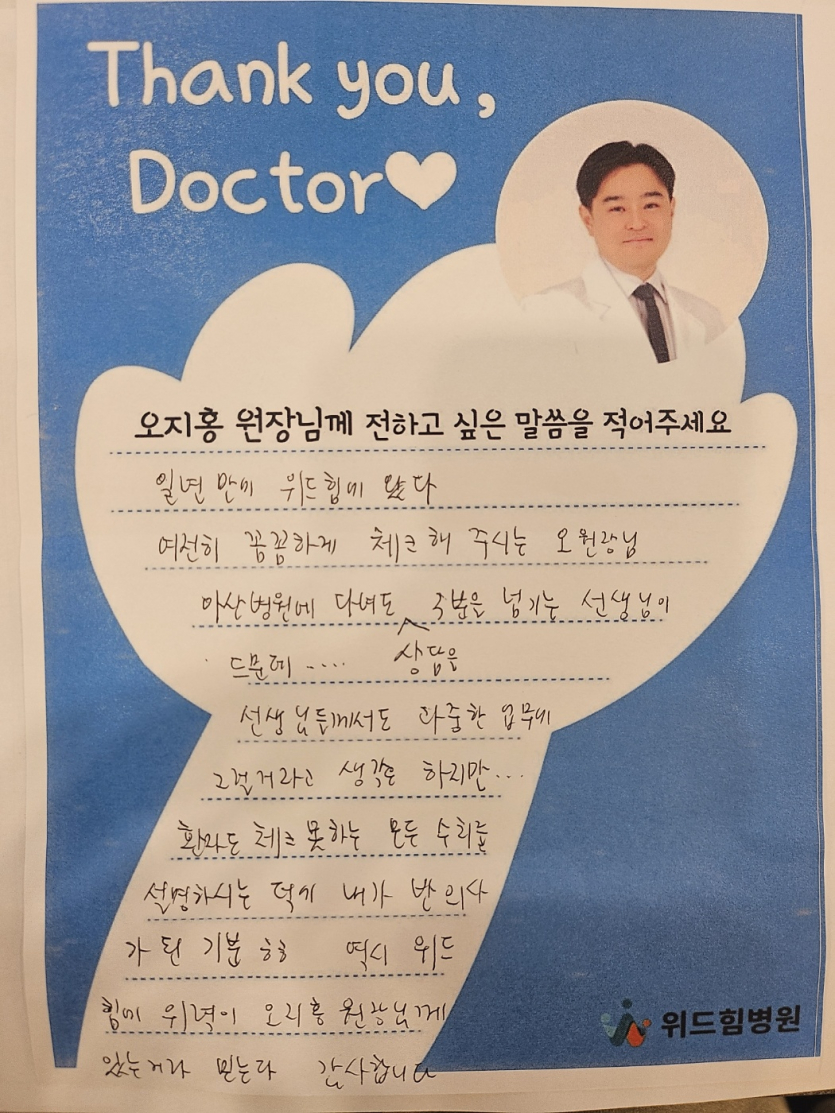 Thank you,
Doctor
오지홍 원장님께 전하고 싶은 말씀을 적어주세요
일년 만에 위드힘에 왔다
여전히 꼼꼼하게 체크해 주시는 오원장님
아산병원에 다녀도 5분을 넘기는 선생님이
드문데 ..... 상담을
선생님들께서도 과중한 업무에
그럴거라고 생각은 하지만...
환자도 체크 못하는 모든 수치를
설명하시는 덕에 내가 반 의사
가 된 기분 ㅎㅎ 역시 위드
힘에 위력이 오지홍 원장님께
있는거라 믿는다 감사합니다
위드힘병원